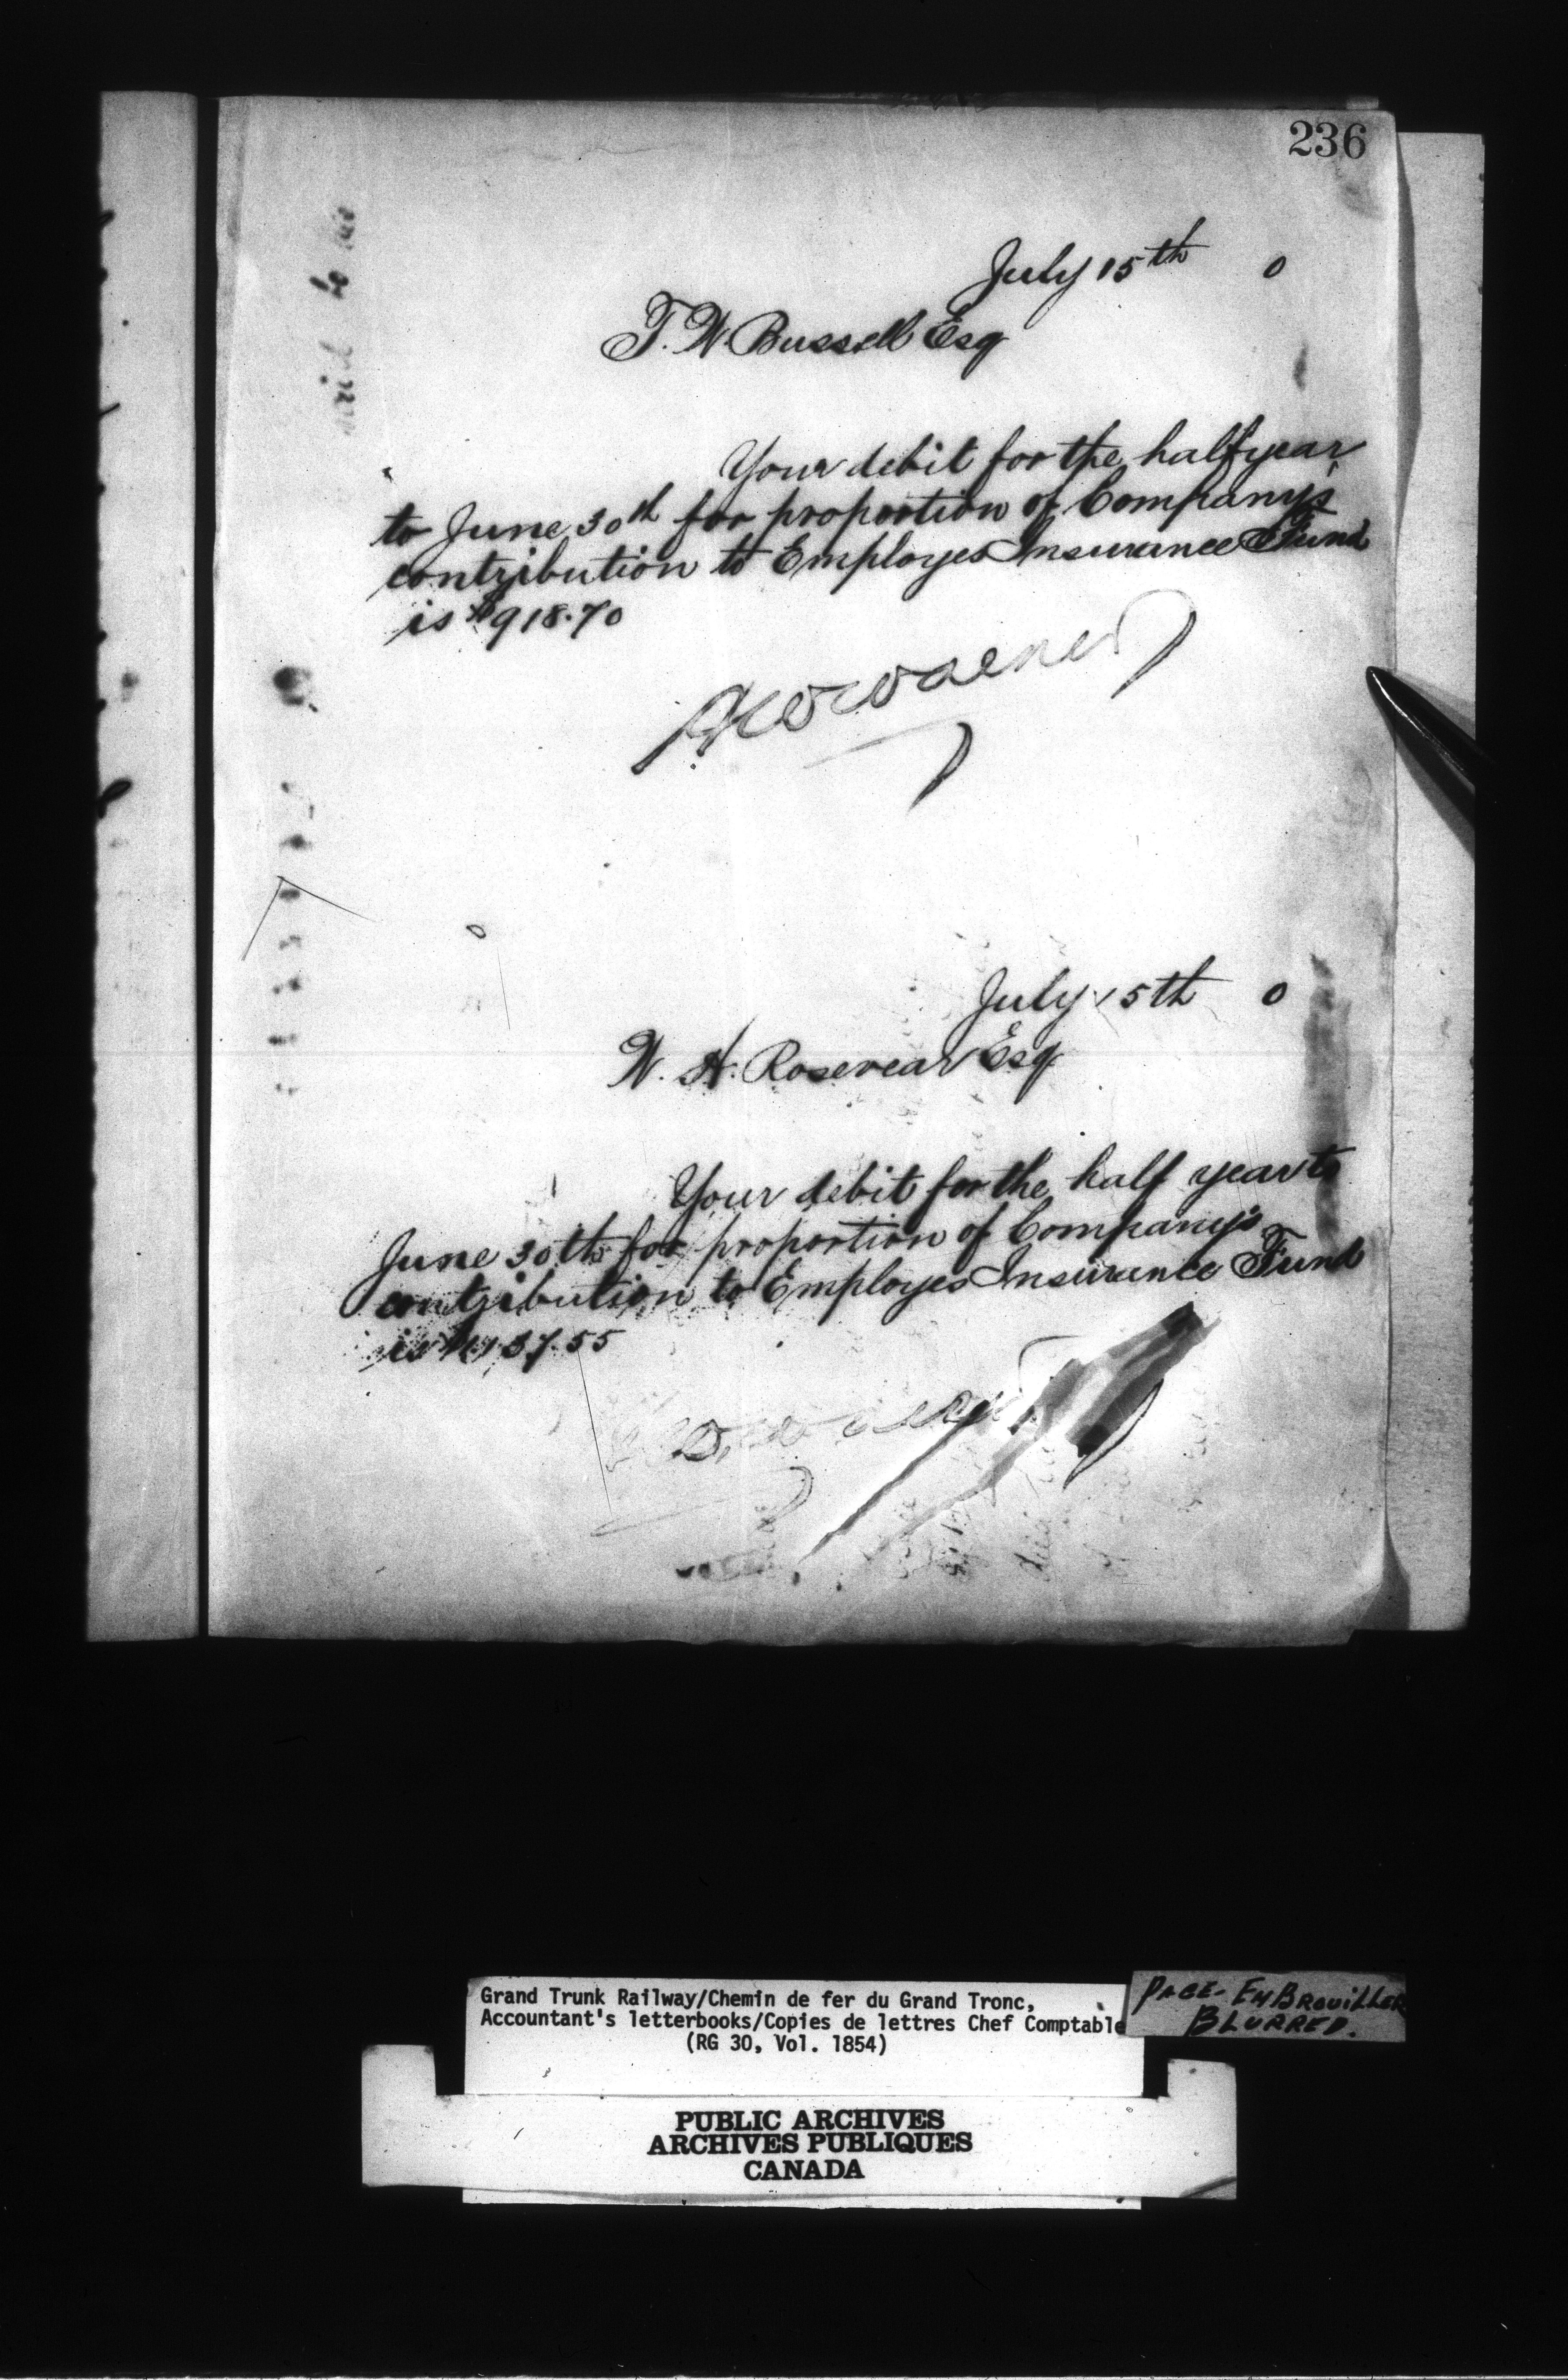 236
July 15th 0
T. W Bussell Esq
Your debit for the half year
to June 30th for proportion of Company's
contribution to Employes Insurance Fund
is $918.70
July 15th 0
W. H. Rosevear Esq
Your debit for the half year to
June 30th for proportion of Company's
contribution to Employes Insurance Fund
is
Grand Trunk Railway/Chemin de fer du Grand Tronc,
Accountant's letterbooks/Copies de lettres Chef Comptable
(RG 30, Vol. 1854)
PAGE - EMBROUILLER
BLURRED.
PUBLIC ARCHIVES
ARCHIVES PUBLIQUES
CANADA